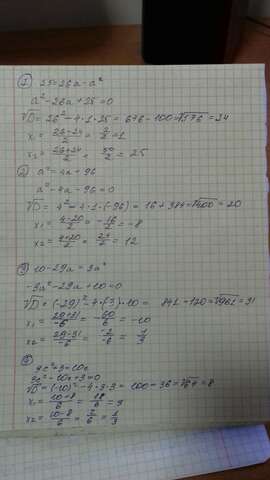 ① 25=26a-a²
a²-26a+25=0
√D=26²-4·1·25=676-100=√576=24
x₁=(26-24)/2=2/2=1
x₂=(26+24)/2=50/2=25
② a²=4a+96
a²-4a-96=0
√D=4²-4·1·(-96)=16+384=√400=20
x₁=(4-20)/2=-16/2=-8
x₂=(4+20)/2=24/2=12
③ 10-29a=3a²
-3a²-29a+10=0
√D=(-29)²-4·(-3)·10=841+120=√961=31
x₁=(29+31)/-6=-60/6=-10
x₂=(29-31)/-6=-2/-6=1/3
3c²+3=10c
3c²-10c+3=0
√D=(-10)²-4·3·3=100-36=√64=8
x₁=(10+8)/6=18/6=3
x₂=(10-8)/6=2/6=1/3